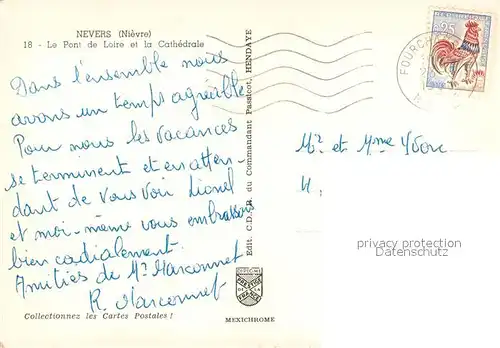 NEVERS (Nièvre)
18 - Le Pont de Loire et la Cathédrale
Dans l'ensemble nous
avons un temps agréable
Pour nous les vacances
se terminent et en atten-
dant de vous voir Lionel
et moi-même vous embrassons
bien cordialement.
Amitiés de Mr Marconnet
R. Marconnet
Collectionnez les Cartes Postales !
Edit. C.D.C.R. du Commandant Passicot, HENDAYE
PRESTIGE
DE LA
FRANCE
MEXICHROME
0,25
FOURC
Mr et Mme Yvon
privacy protection
Datenschutz